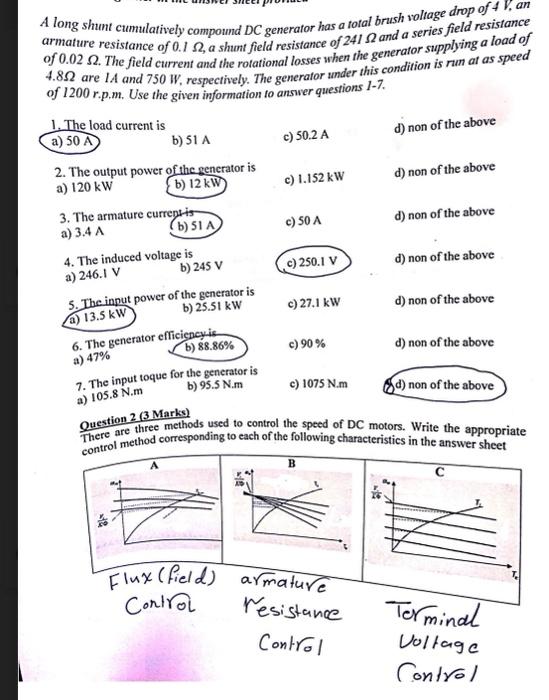 A long shunt cumulatively compound DC generator has a total brush voltage drop of 4 V, an
armature resistance of 0.1 Ω, a shunt field resistance of 241 Ω and a series field resistance
of 0.02 Ω. The field current and the rotational losses when the generator supplying a load of
4.8Ω are 1A and 750 W, respectively. The generator under this condition is run at as speed
of 1200 r.p.m. Use the given information to answer questions 1-7.
1. The load current is
a) 50 A b) 51 A c) 50.2 A d) non of the above
2. The output power of the generator is
a) 120 kW b) 12 kW c) 1.152 kW d) non of the above
3. The armature current is
a) 3.4 A b) 51 A c) 50 A d) non of the above
4. The induced voltage is
a) 246.1 V b) 245 V c) 250.1 V d) non of the above
5. The input power of the generator is
a) 13.5 kW b) 25.51 kW c) 27.1 kW d) non of the above
6. The generator efficiency is
a) 47% b) 88.86% c) 90 % d) non of the above
7. The input toque for the generator is
a) 105.8 N.m b) 95.5 N.m c) 1075 N.m d) non of the above
Question 2 (3 Marks)
There are three methods used to control the speed of DC motors. Write the appropriate
control method corresponding to each of the following characteristics in the answer sheet
A B C
Flux (field) armature
Control resistance Terminal
Control Voltage
Control